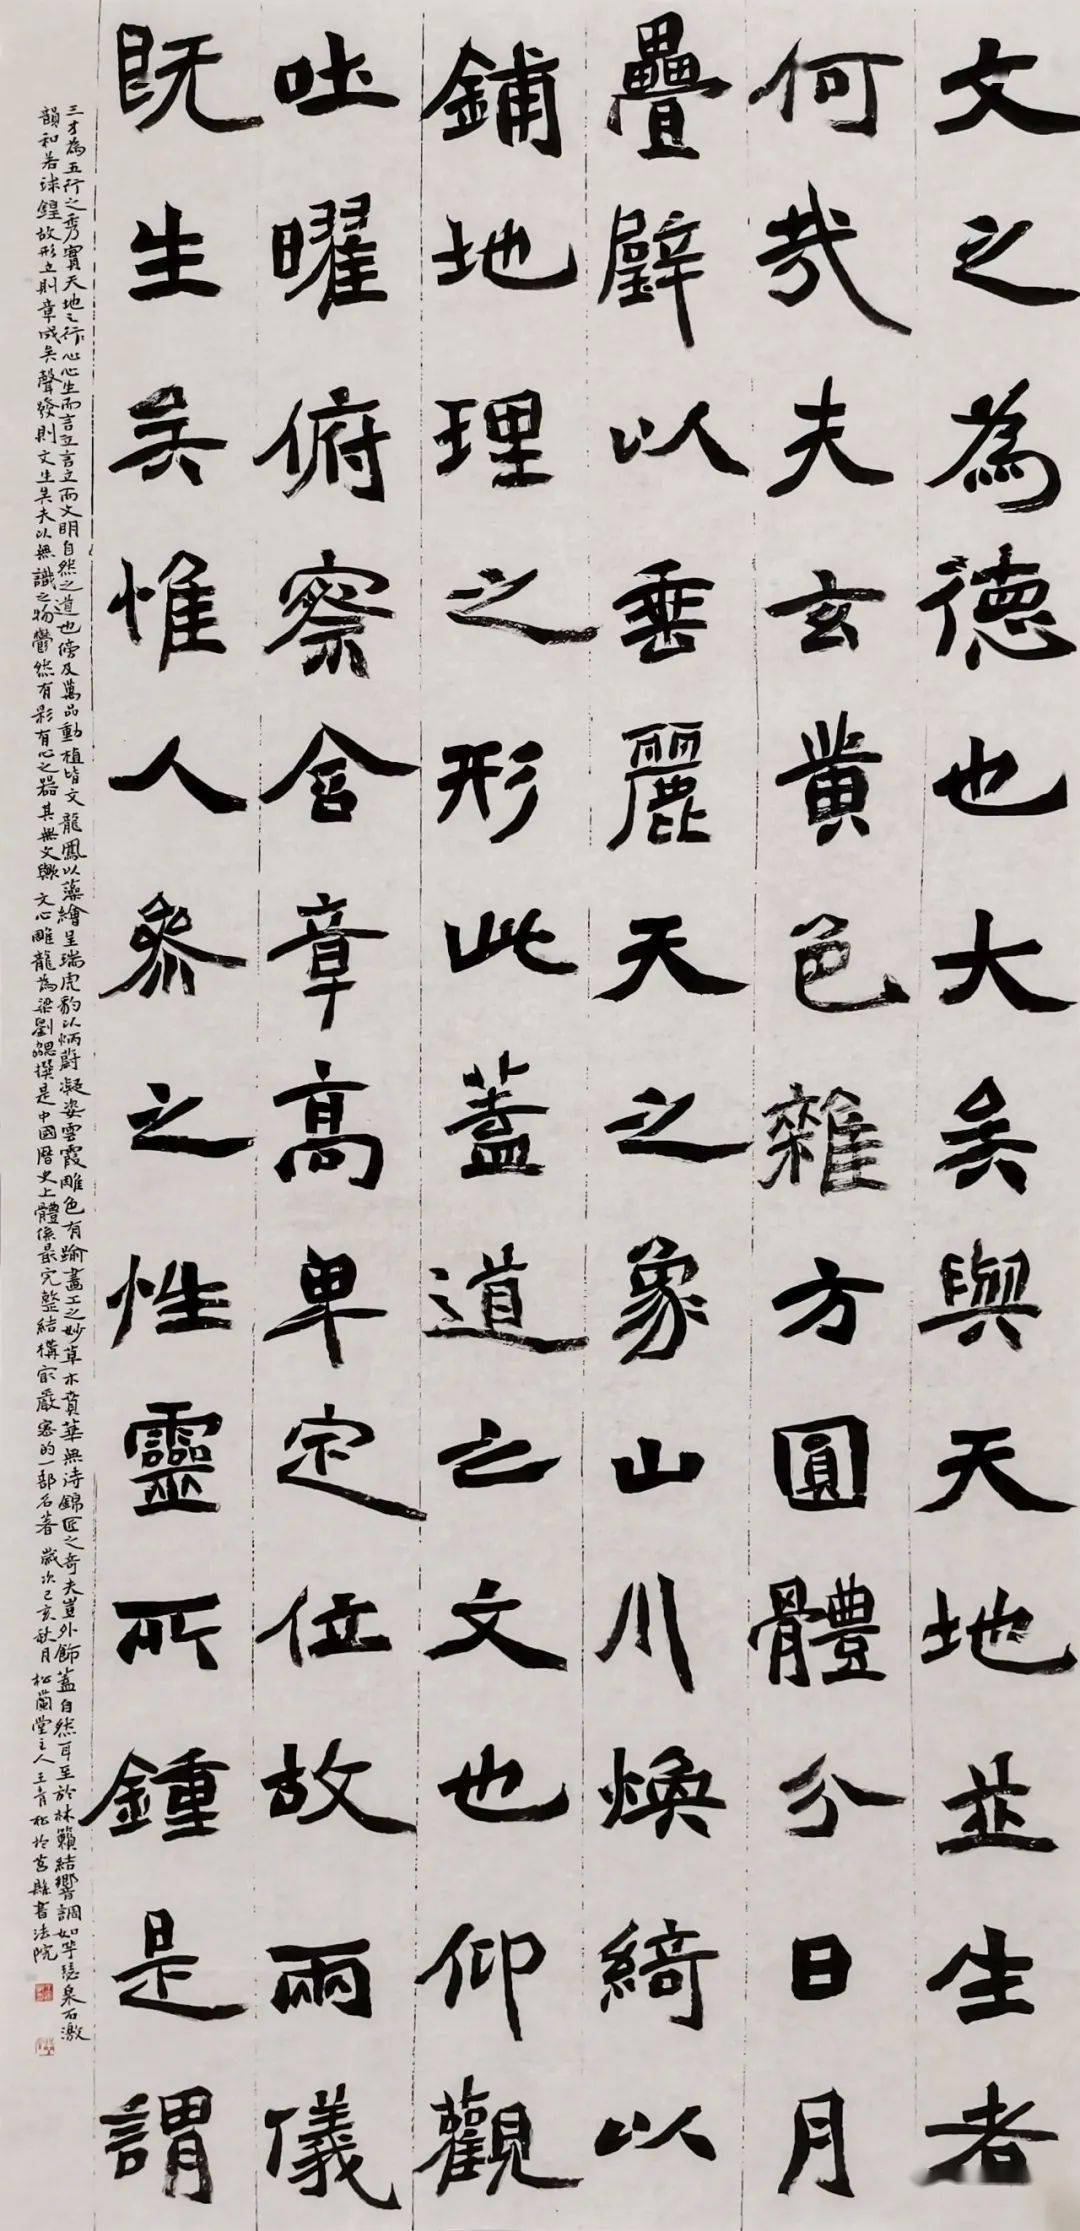 文之為德也大矣與天地並生者
何哉夫玄黄色雜方圓體分日月
疊璧以垂麗天之象山川煥綺以
鋪地理之形此蓋道之文也仰觀
吐曜俯察含章高卑定位故兩儀
既生矣惟人參之性靈所鍾是謂
三才為五行之秀實天地之心心生而言立言立而文明自然之道也傍及萬品動植皆文龍鳳以藻繪呈瑞虎豹以炳蔚凝姿雲霞雕色有踰畫工之妙草木賁華無待錦匠之奇夫豈外飾蓋自然耳至於林籟結響調如竽瑟泉石激
韻和若球鍠故形立則章成矣聲發則文生矣夫以無識之物鬱然有彩有心之器其無文歟 文心雕龍為梁劉勰撰是中國曆史上體係最完整結構最嚴密的一部名著 歲次己亥秋月 松蘭堂主人王青松於莒縣書法院